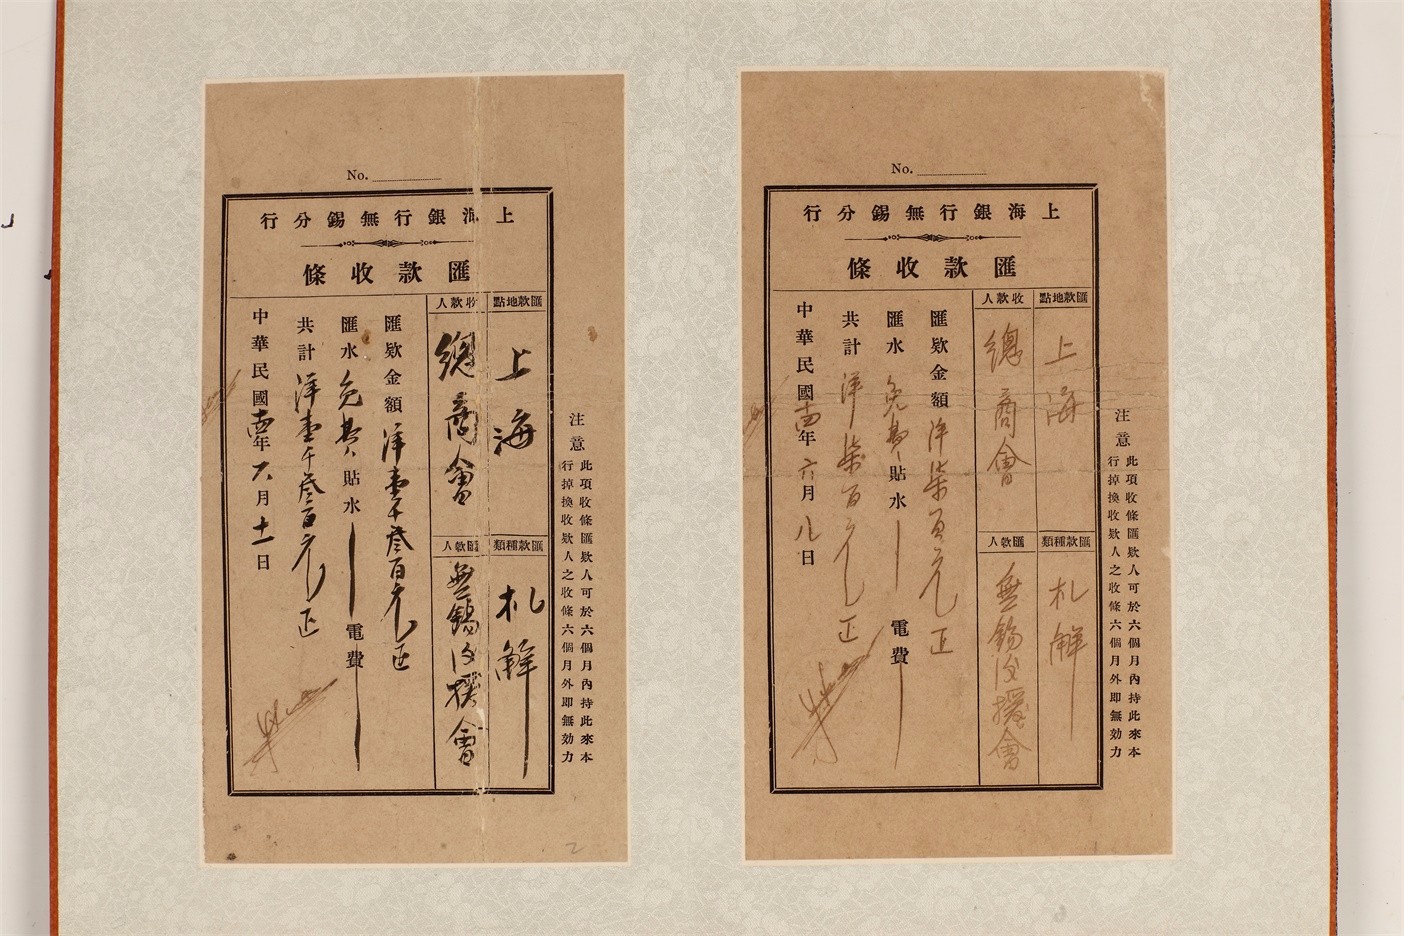 No.
上海銀行無錫分行
匯款收條
匯款地點
上海
匯款種類
札解
收款人
總商會
匯款人
無錫後援會
匯欵金額洋壹千叁百元正
匯水免費貼水電費
共計洋壹千叁百元正
中華民國十四年六月十一日
注意
此項收條匯欵人可於六個月內持此來本
行掉換收欵人之收條六個月外即無効力
2
No.
上海銀行無錫分行
匯款收條
匯款地點
上海
匯款種類
札解
收款人
總商會
匯款人
無錫後援會
匯欵金額洋柒百元正
匯水免費貼水電費
共計洋柒百元正
中華民國十四年六月八日
注意
此項收條匯欵人可於六個月內持此來本
行掉換收欵人之收條六個月外即無効力